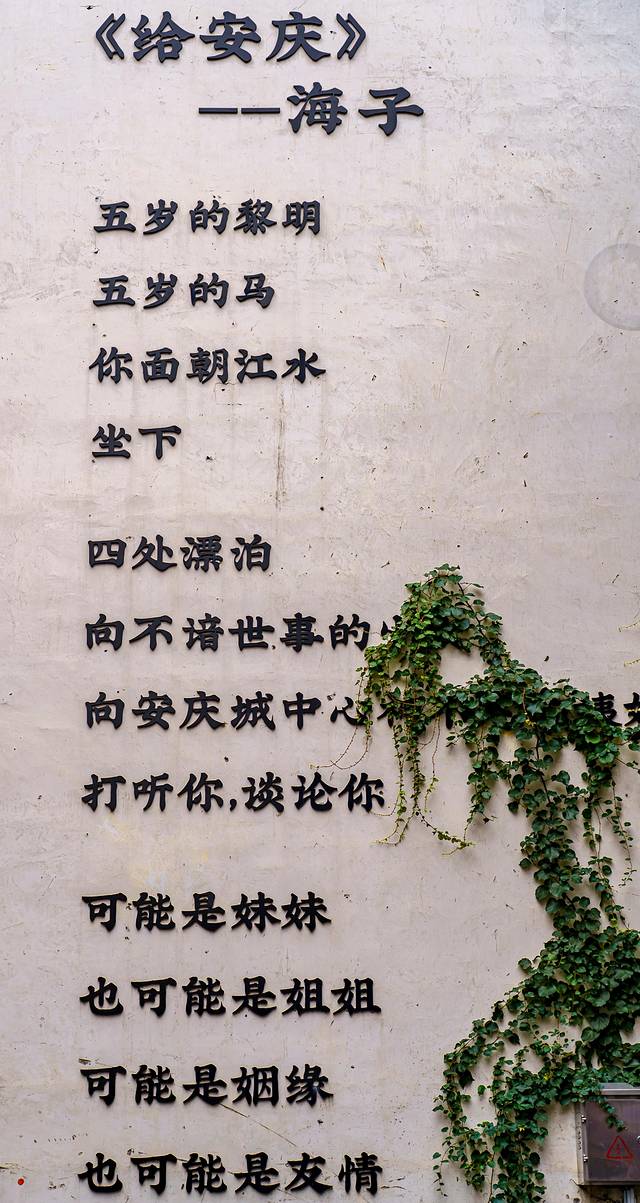 《给安庆》
——海子
五岁的黎明
五岁的马
你面朝江水
坐下
四处漂泊
向不谙世事的
向安庆城中心
打听你,谈论你
可能是妹妹
也可能是姐姐
可能是姻缘
也可能是友情